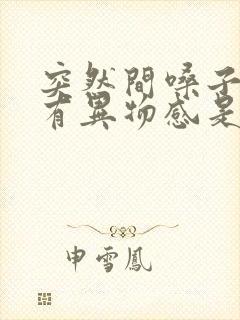 突然間嗓子
有異物感是
申雪鳳